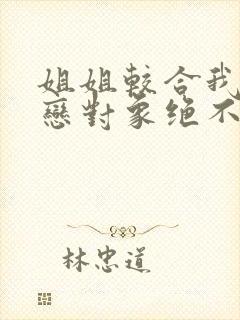 姐姐較合我
戀對象绝不
林忠道